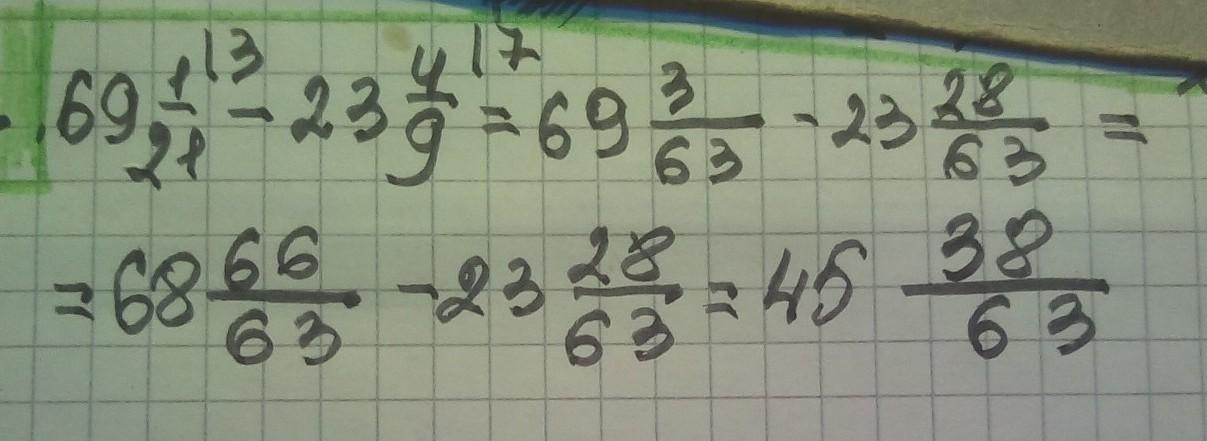 69 1/21 |3 - 23 4/9 |7 = 69 3/63 - 23 28/63 =
= 68 66/63 - 23 28/63 = 45 38/63